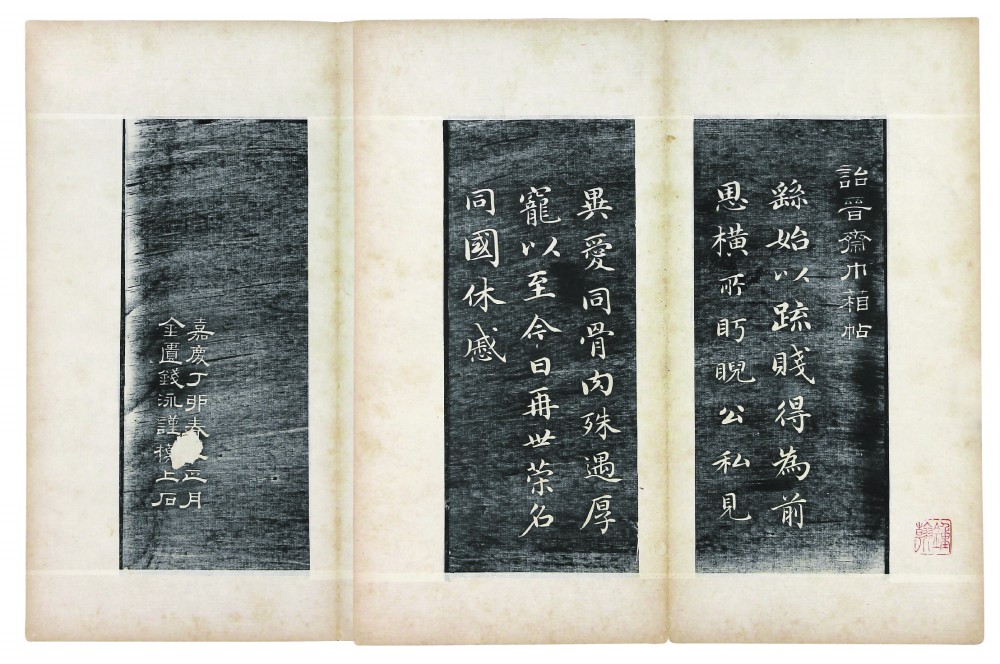 詒晉齋巾箱帖
繇始以疏賤得為前
恩橫所盱睨公私見
異愛同骨肉殊遇厚
寵以至今日再世荣名
同國休慼
嘉慶丁卯春正月
金匱錢泳謹摹上石